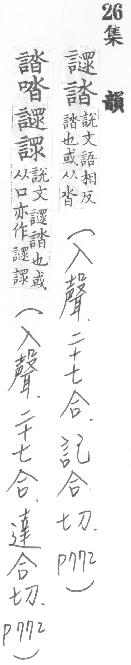 26 集 韻
䜚誻 說文語相反
誻也或从沓
(入聲.二十七合.託合切.P772)
誻 䜚 說文䜚誻也或
从口亦作䜚
(入聲.二十七合.達合切.P772)